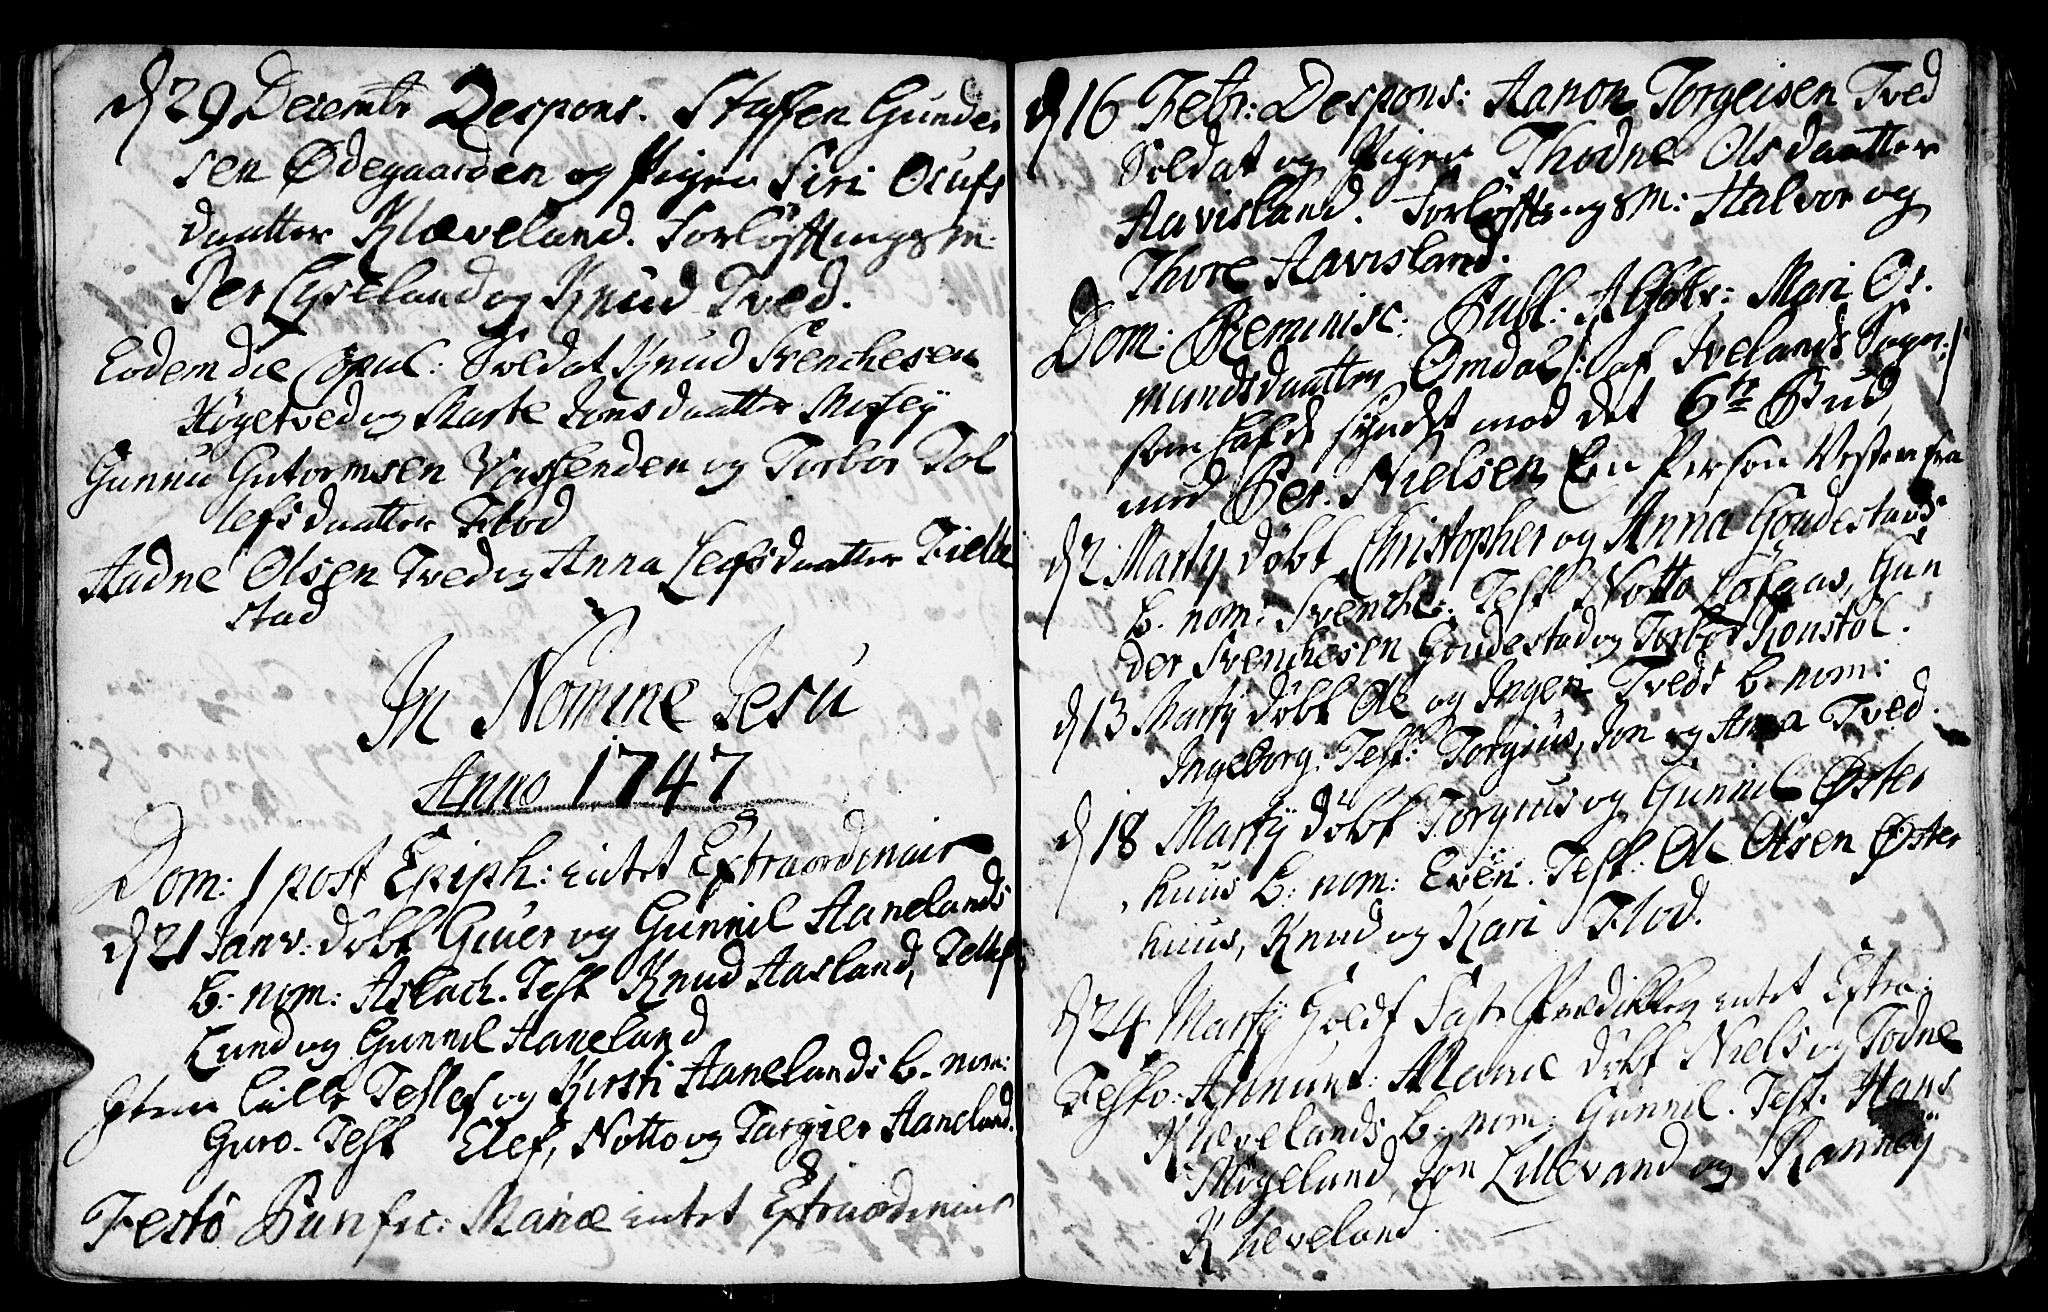 d 29 Decembr Despons. Staffen Gunder
sen Ødegaarden og Pigen Siri Olufs
daatter Klæveland. Forløftningsm:
Per Lyseland og Knud Tved.
Eodem die Copul: Soldat Knud Svenchesen
Høgetved og Marte Jonsdaatter Mosey
Gunnu Gutormsen Vassenden og Torbor Tol
lefsdaatter Flod
Aadne Olsen Tved og Anna Lefsdaatter Fielde
stad
In Nomine Jesu
Anno 1747
Dom: 1 post Epiph: intet Extraordinair
d 21 Janv: døbt Giuer og Gunnil Aanelands
b: nom: Aslach. Test Knud Aasland, Tellef
Lund og Gunnil Aaneland
Item lille Tellef og Kirsti Aanelands b. nom:
Guro. Test Elef, Notto og Targier Aaneland.
Festo Purific: Mariæ intet Extraordinair
d 16 Febr: Despons: Aanon Torgeisen Tved
Soldat og Pigen Thodne Olsdaatter
Aavisland. Forløftningsm: Halvor og
Thore Aavisland.
Dom: Reminisc: Publ: Absolv: Mari Os
mundsdaatter Omdal /: af Ivelands Sogn :/
som hafde syndet mod det 6te Bud
med Per Nielsen En Person Vesten fra
d 2 Martij døbt Christopher og Anna Goudestads
b. nom: Svenche. Test Notto Løfaas, Gun
der Svenchesen Goudestad og Torbor Konstøl.
d 13 Martij døbt Ole og Ingeri Tveds b. nom:
Ingeborg. Test: Torgius, Jon og Anna Tved.
d 18 Martij døbt Torgius og Gunnil Øster
huus b: nom: Even. Test: Ole Olsen Øster
huus, Knud og Kari Flod.
d 24 Martij Holdt Faste Prædikken intet Extra:
Festo: Annunt: Mariæ døbt Niels og Todne
Khevelands b. nom: Gunnil. Test. Hans
Møgeland, Jon Lillevand og Ranney
Kheveland.